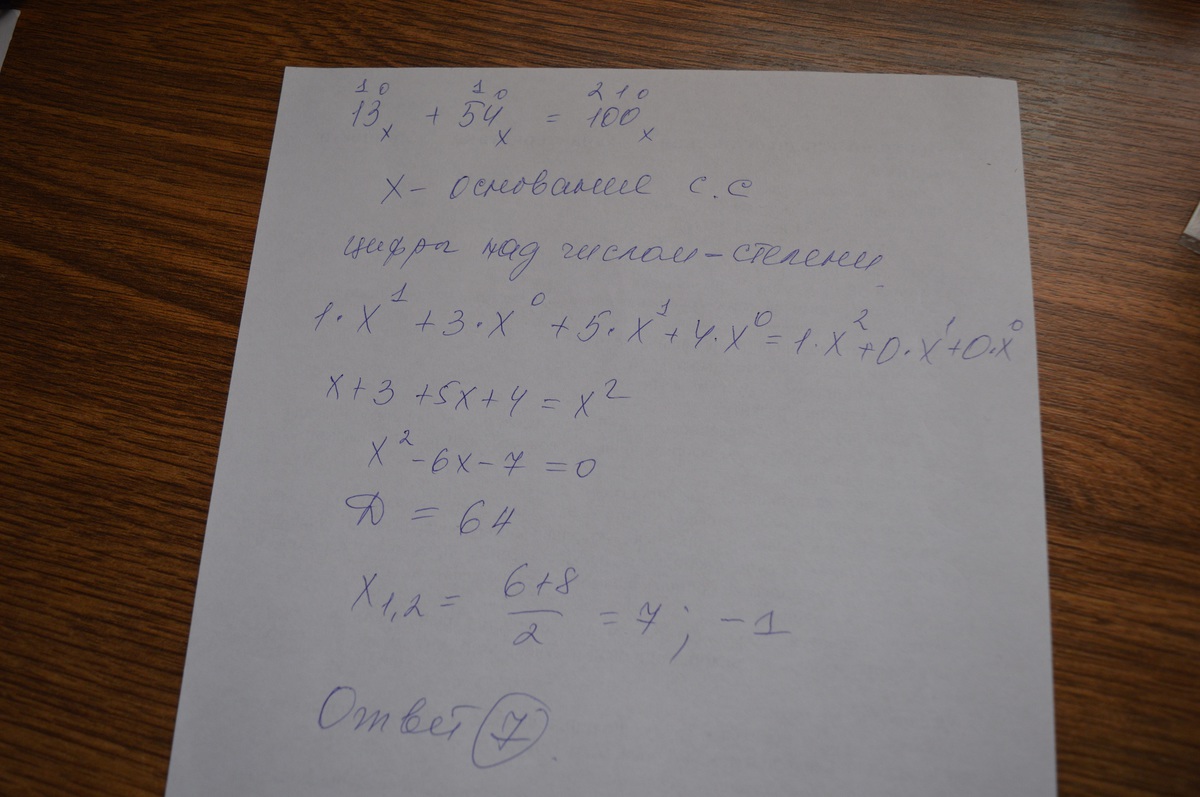 1 0 1 0 2 1 0
13x + 54x = 100x
x - основание с.с
цифры над числом - степени
1·x¹ + 3·x⁰ + 5·x¹ + 4·x⁰ = 1·x² + 0·x¹ + 0·x⁰
x + 3 + 5x + 4 = x²
x² - 6x - 7 = 0
D = 64
x1,2 = (6+8)/2 = 7 ; -1
Ответ 7